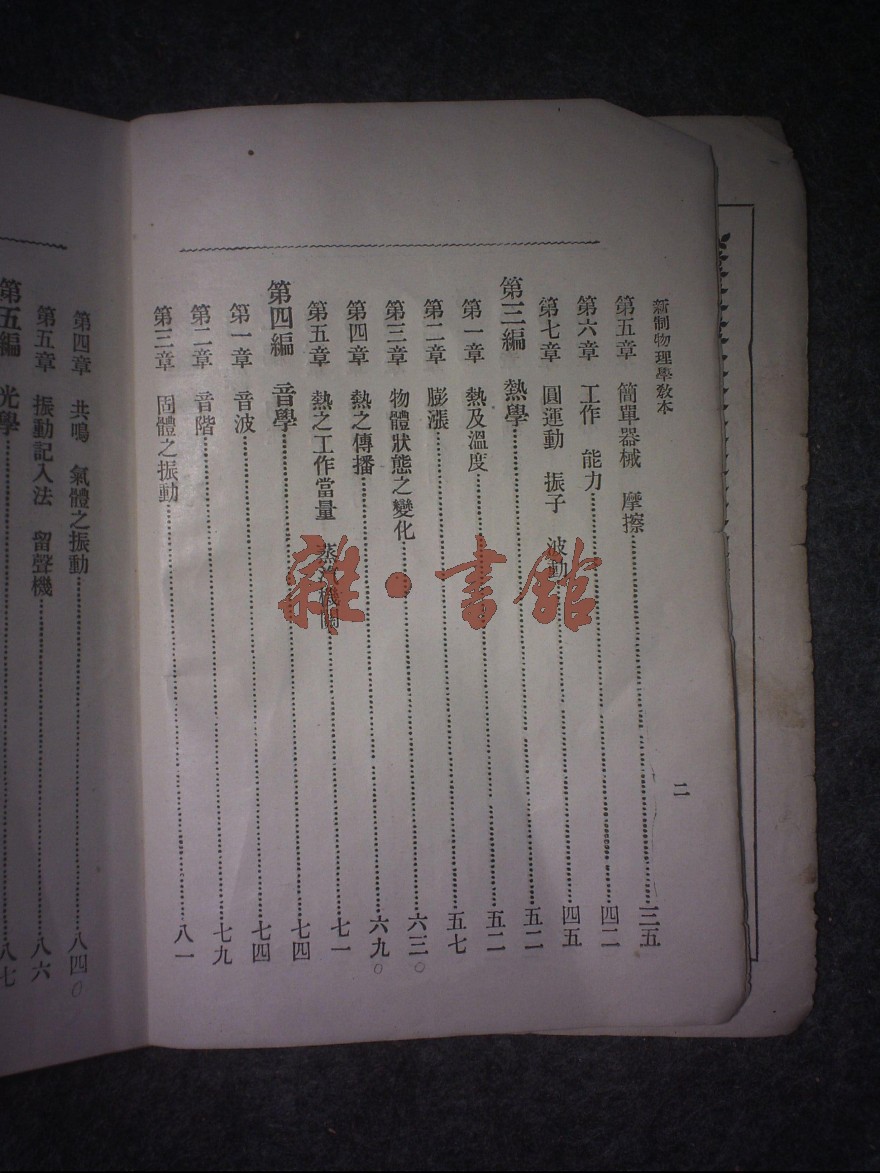 新制物理學敎本
二
第五章 簡單器械 摩擦 三五
第六章 工作 能力 四二
第七章 圓運動 振子 波動 四五
第三編 熱學 五二
第一章 熱及溫度 五二
第二章 膨漲 五七
第三章 物體狀態之變化 六三
第四章 熱之傳播 六九
第五章 熱之工作當量 蒸汽機關 七一
第四編 音學 七四
第一章 音波 七四
第二章 音階 七九
第三章 固體之振動 八一
第四章 共鳴 氣體之振動 八四
第五章 振動記入法 留聲機 八六
第五編 光學 八七
雜·書館